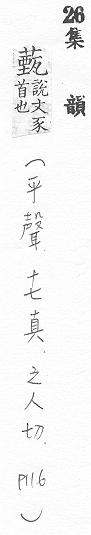 26集韻
薽說文豕
首也
(平聲.十七真.之人切.P116)